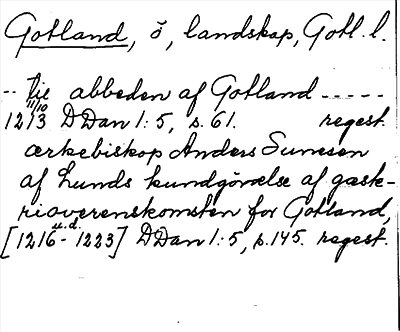 Gotland, ö, landskap, Gotl. l.
-- tie abbeden af Gotland -----
11/10
1213 DDan 1:5, s. 61. regest.
ærkebiskop Anders Sunesen
af Lunds kundgörelse af gæste-
rioverenskomsten for Gotland,
u.d.
[1216 - 1223] DDan 1:5, s. 145. regest.